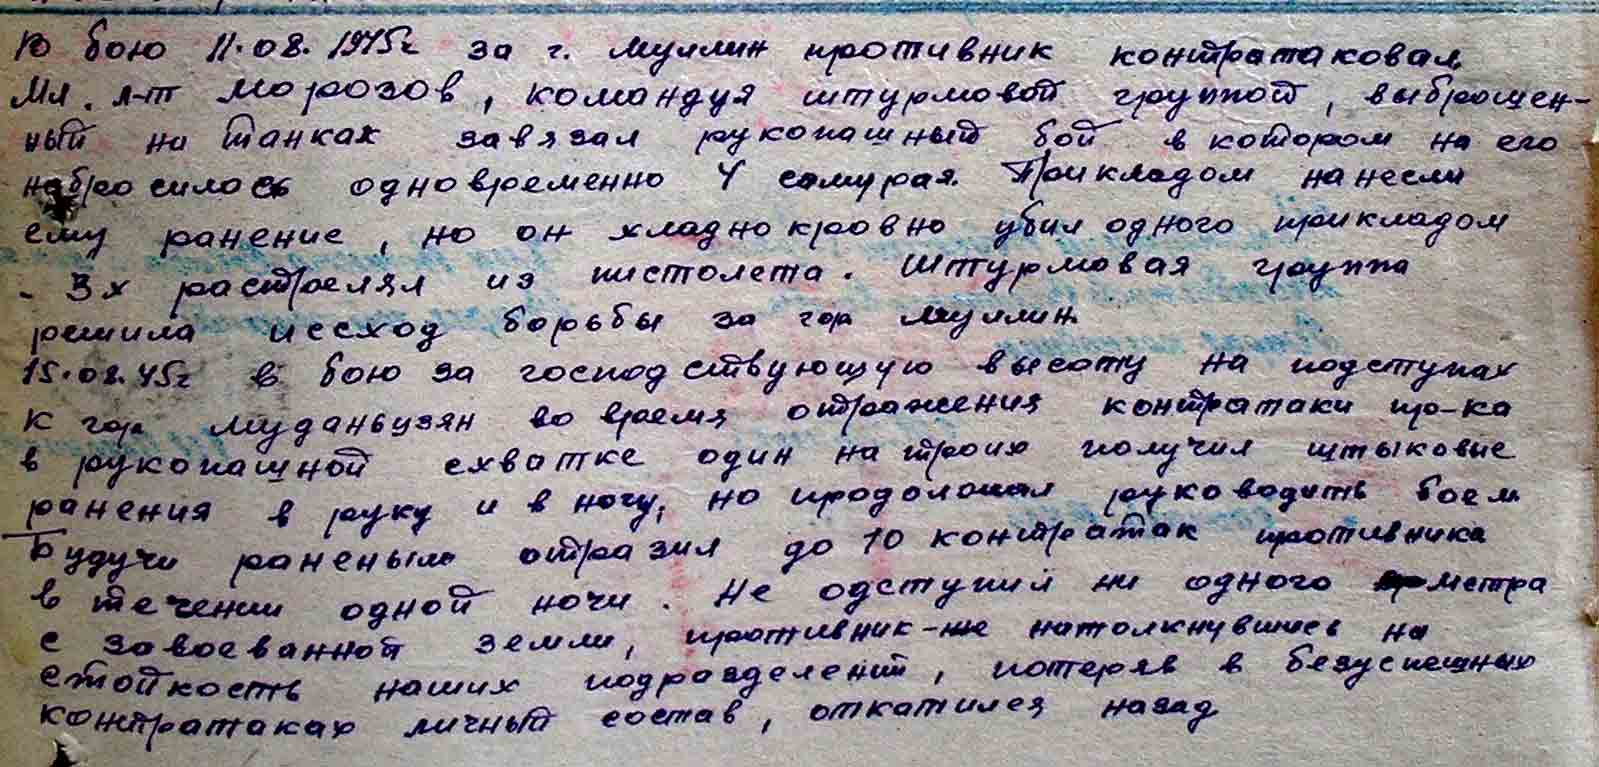 В бою 11.08.1945г за г. Мулин противник контратаковал.
Мл. л-т Морозов, командуя штурмовой группой, выброшен-
ный на танках завязал рукопашный бой в котором на его
набросилось одновременно 4 самурая. Прикладом нанесли
ему ранение, но он хладнокровно убил одного прикладом
- 3х растрелял из пистолета. Штурмовая группа
решила иссход борьбы за гор Мулин.
15.08.45г в бою за господствующую высоту на подступах
к гор Муданьцзян во время отражения контратаки пр-ка
в рукопашной схватке один на троих получил штыковые
ранения в руку и в ногу, но продолжал руководить боем.
Будучи раненым отразил до 10 контратак противника
в течении одной ночи. Не одступил ни одного метра
с завоеванной земли, противник-же натолкнувшись на
стойкость наших подразделений, потеряв в безуспешных
контратаках личный состав, откатился назад